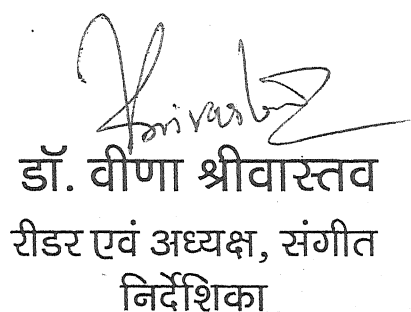 डॉ. वीणा श्रीवास्तव
रीडर एवं अध्यक्ष, संगीत
निर्देशिका